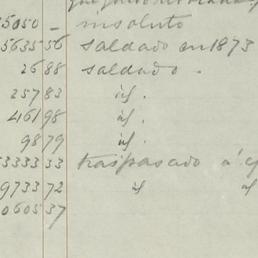 5050 _ insoluto
5635 56 saldado en 1873
2688 saldado.
257 83 id.
461 98 id.
98 79 id.
3333 33 traspasado á
9733 72 id id
0605 37